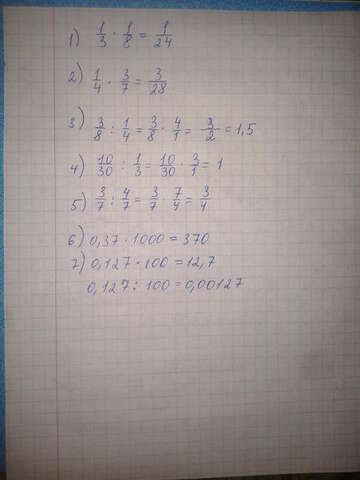 1) 1/3 · 1/8 = 1/24
2) 1/4 · 3/7 = 3/28
3) 3/8 : 1/4 = 3/8 · 4/1 = 3/2 = 1,5
4) 10/30 : 1/3 = 10/30 · 3/1 = 1
5) 3/7 : 4/7 = 3/7 · 7/4 = 3/4
6) 0,37 · 1000 = 370
7) 0,127 · 100 = 12,7
0,127 : 100 = 0,00127